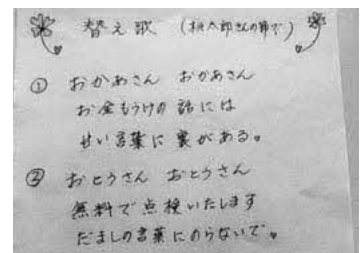 替え歌 (桃太郎さんの節で)
① おかあさん おかあさん
お金もうけの話には
甘い言葉に裏がある。
② おとうさん おとうさん
無料で点検いたします
だましの言葉にのらないで。